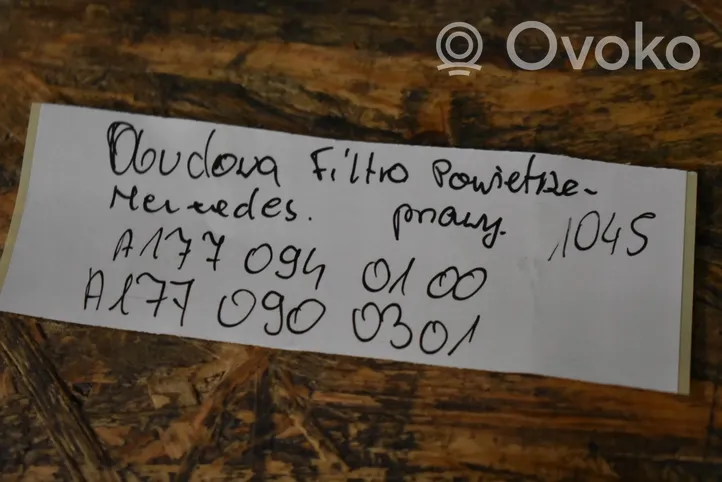 Ovoko
Obudowa Filtra Powietrze-
Mercedes. prawy. 1045
A177 094 0100
A177 090 0301